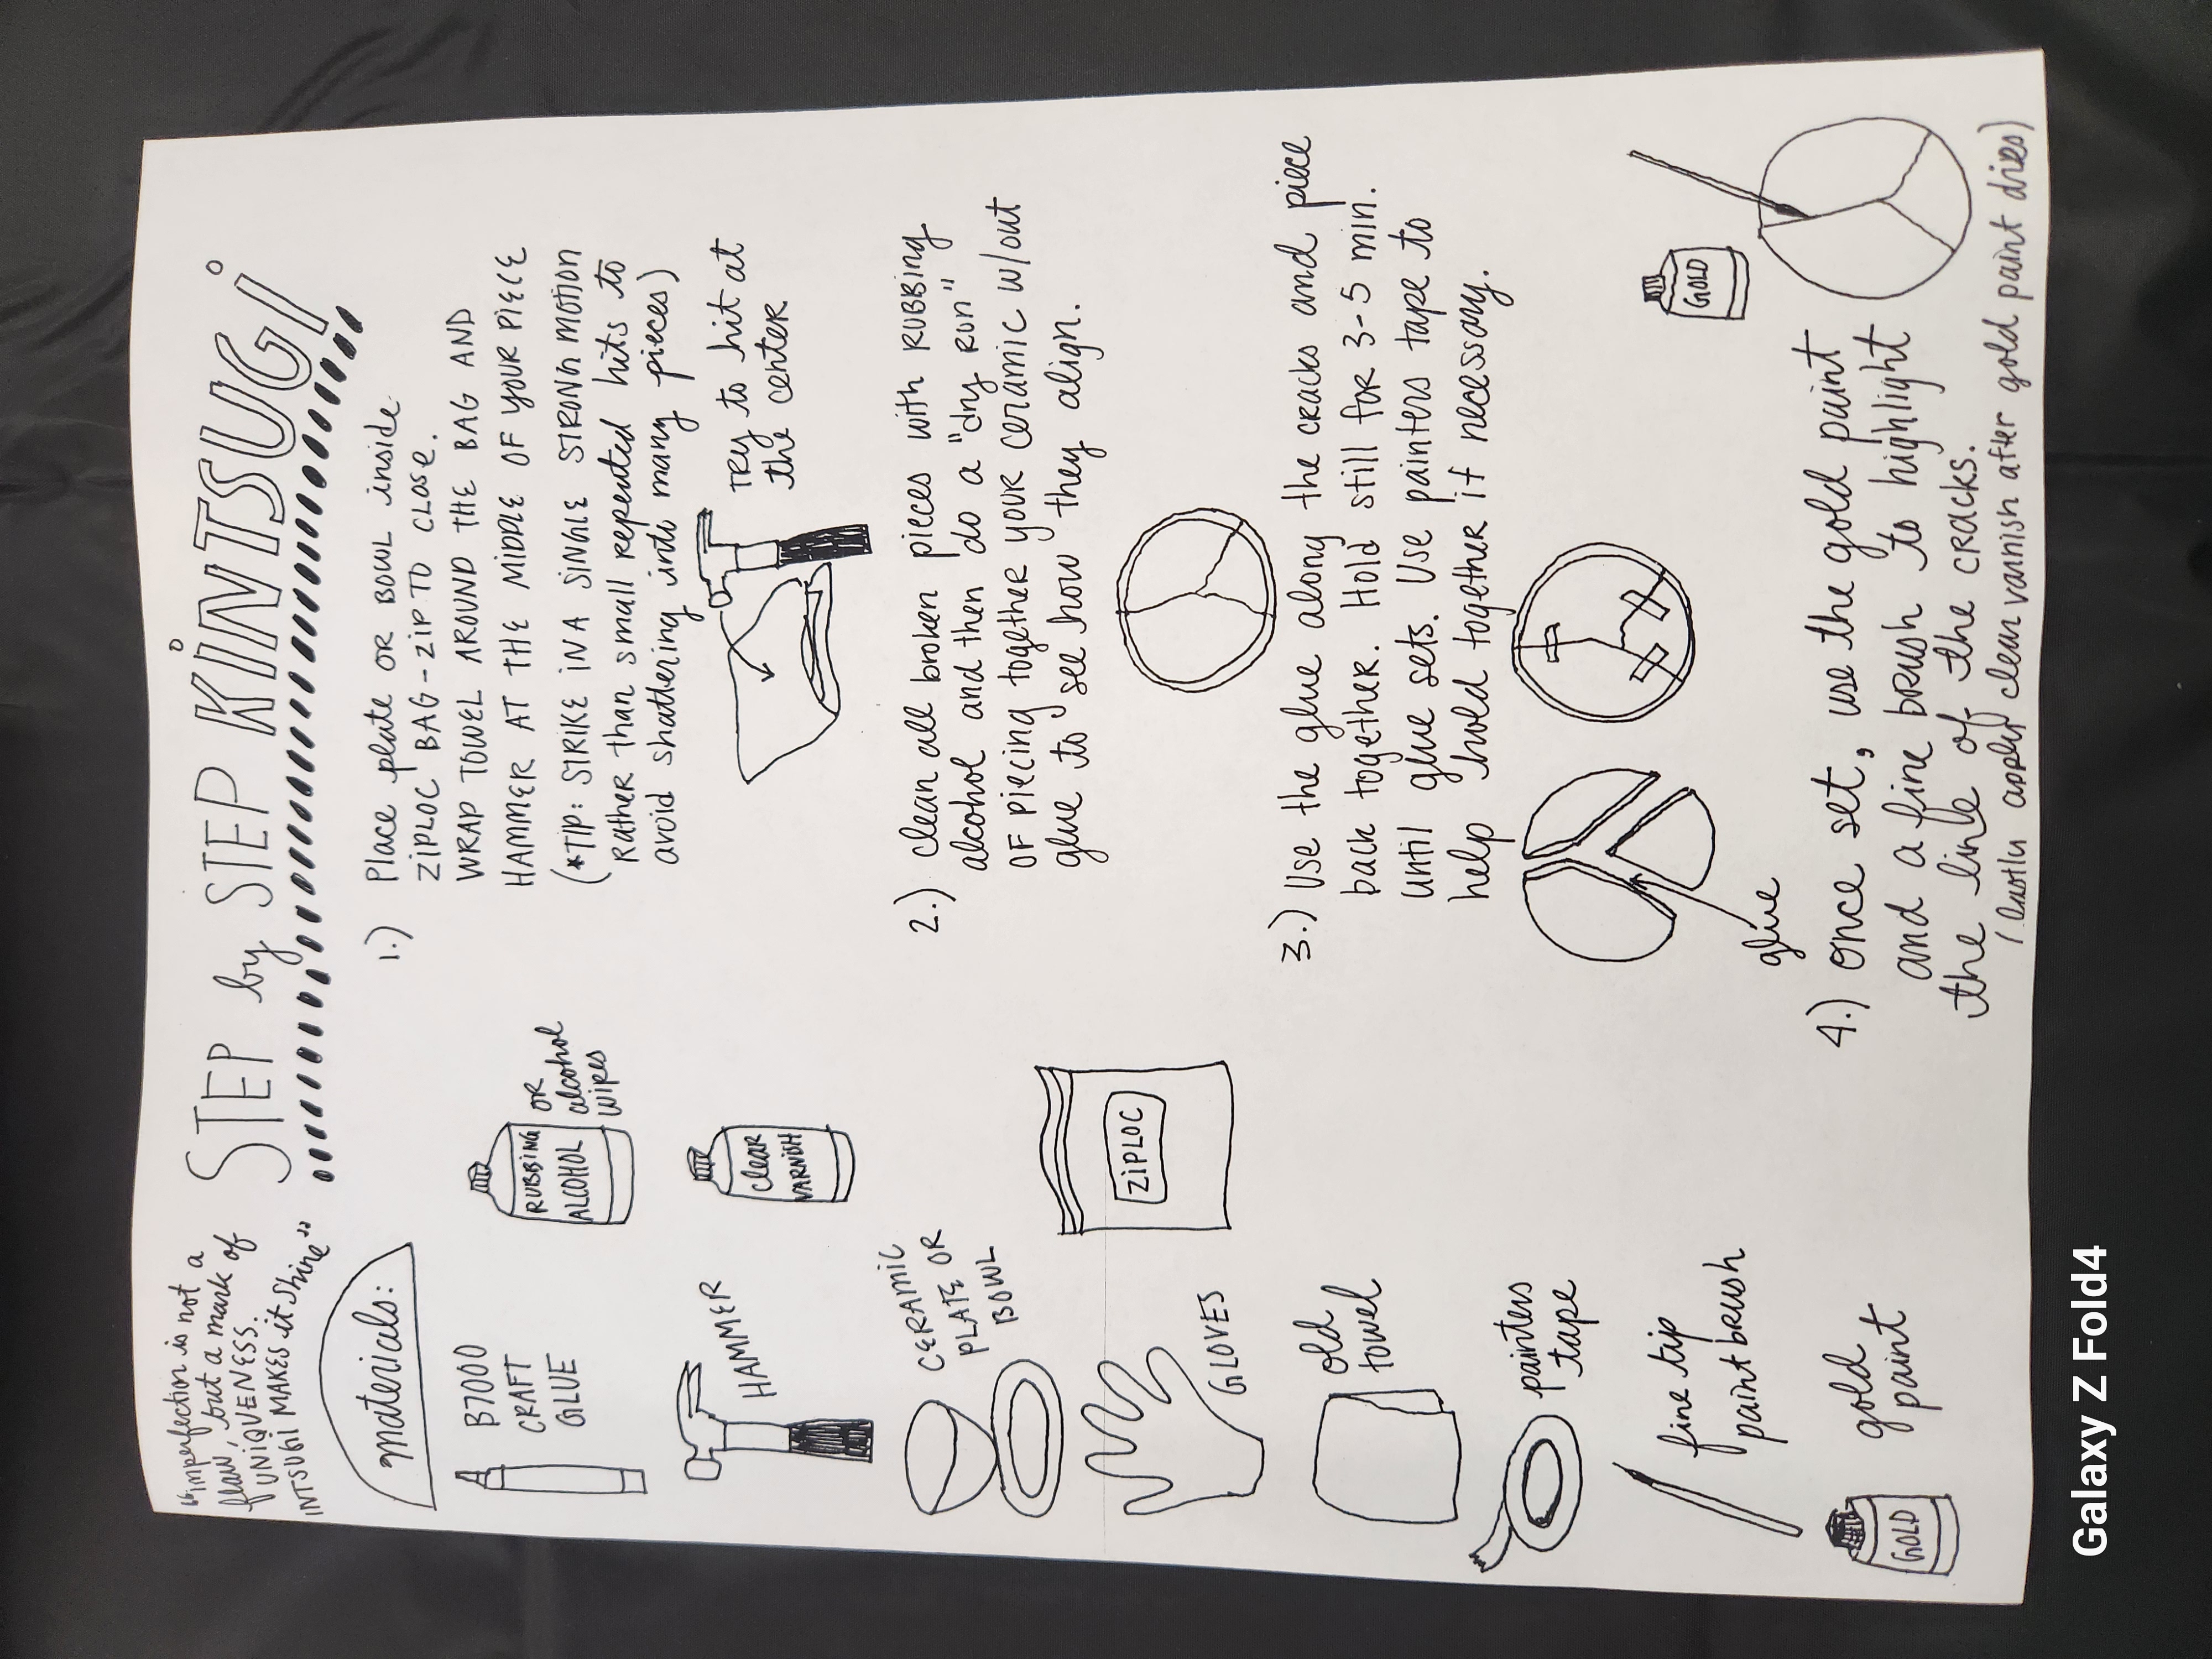 "imperfection is not a
flaw, but a mark of
UNIQUENESS.
INTSUGI MAKES it shine"
STEP by STEP KINTSUGI
materials:
B7000
CRAFT
GLUE
RUBBING
ALCOHOL
OR
alcohol
wipes
HAMMER
Clear
VARNISH
CERAMIC
PLATE OR
BOWL
GLOVES
ZIPLOC
old
towel
painters
tape
fine tip
paint brush
GOLD
gold
paint
1.) Place plate OR BOWL inside
ZIPLOC BAG-ZIP TO CLOSE.
WRAP TOWEL AROUND THE BAG AND
HAMMER AT THE MIDDLE OF YOUR PIECE
(*TIP: STRIKE IN A SINGLE STRONG MOTION
Rather than small repeated hits to
avoid shattering into many pieces)
TRY to hit at
the center
2.) clean all broken pieces with RUBBING
alcohol and then do a "dry RUN"
OF PIECING together your ceramic w/out
glue to see how they align.
3.) Use the glue along the cracks and piece
back together. Hold still for 3-5 min.
until glue sets. Use painters tape to
help hold together if necessary.
glue
4.) once set, use the gold paint
and a fine brush to highlight
the link of the cracks.
(lastly apply clear varnish after gold paint dries)
GOLD
Galaxy Z Fold4